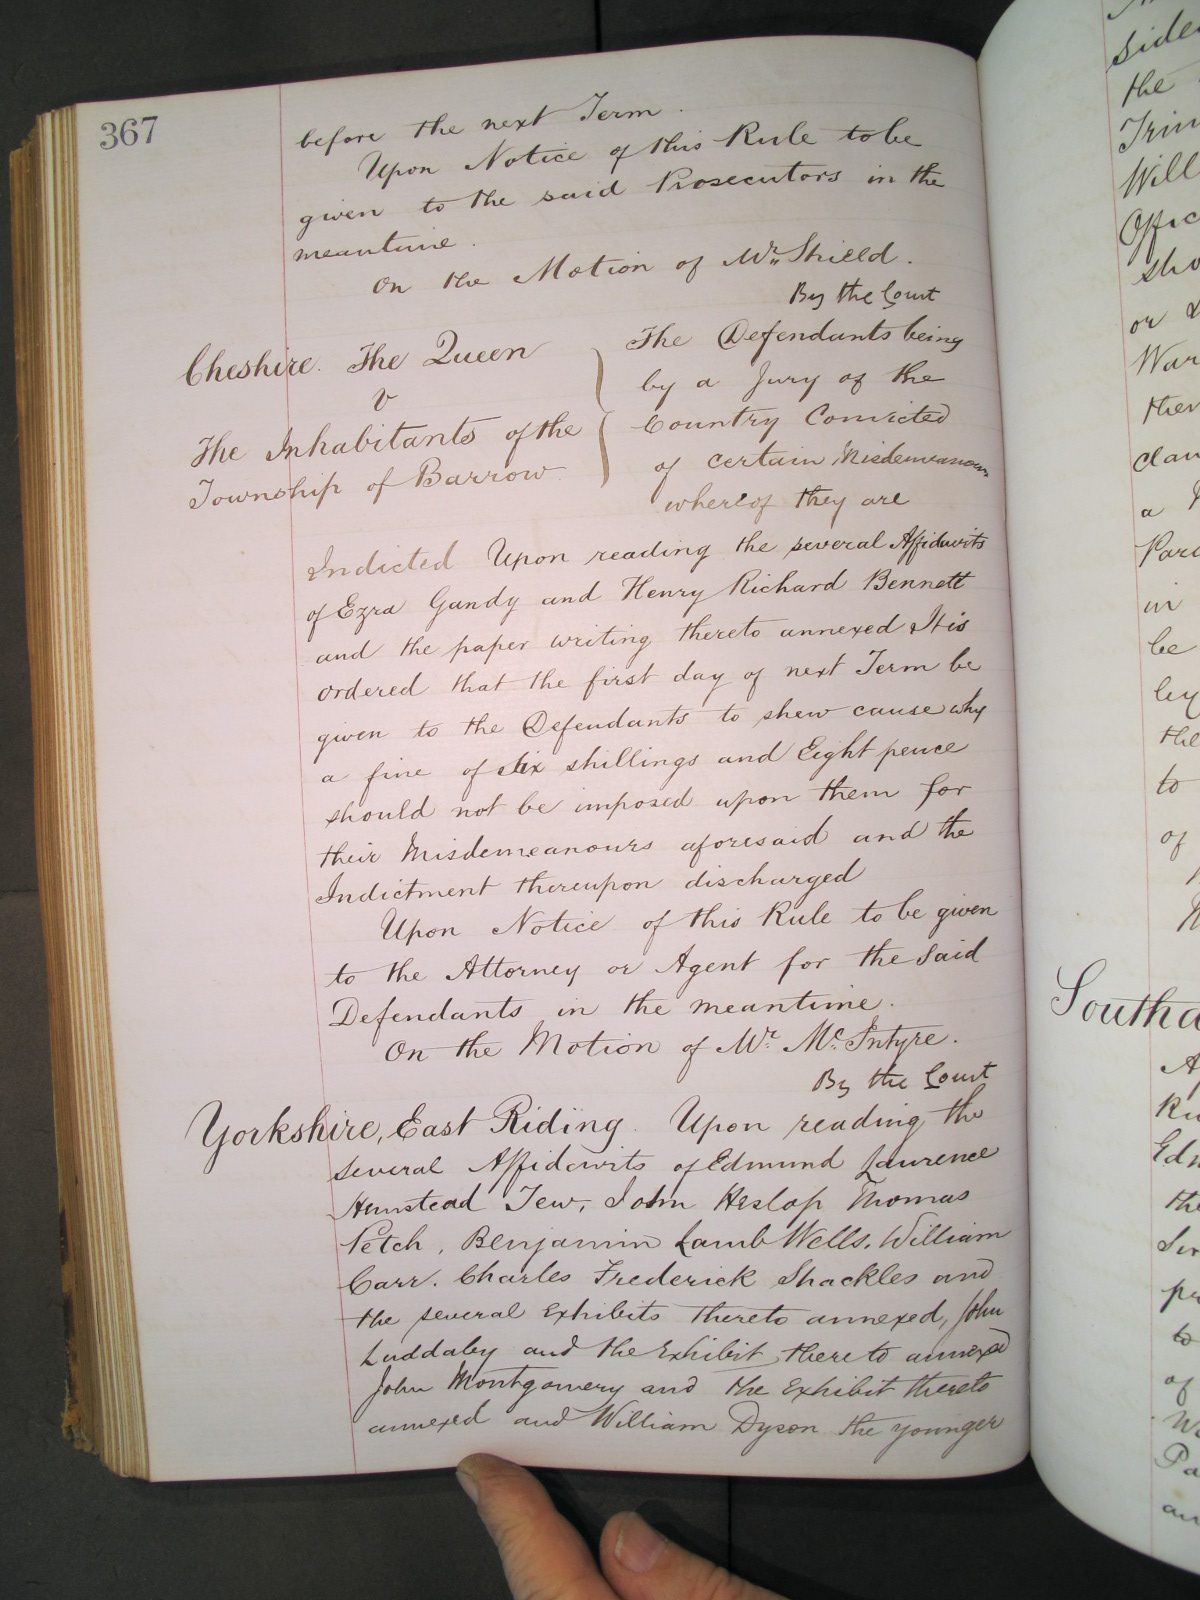 367
before the next Term.
Upon Notice of this Rule to be
given to the said Prosecutors in the
meantime.
On the Motion of Mr. Shield.
By the Court
Cheshire. The Queen
v
The Inhabitants of the
Township of Barrow
The Defendants being
by a Jury of the
Country Convicted
of certain Misdemeanours
whereof they are
Indicted Upon reading the several Affidavits
of Ezra Gandy and Henry Richard Bennett
and the paper writing thereto annexed It is
ordered that the first day of next Term be
given to the Defendants to shew cause why
a fine of six shillings and Eight pence
should not be imposed upon them for
their Misdemeanours aforesaid and the
Indictment thereupon discharged
Upon Notice of this Rule to be given
to the Attorney or Agent for the said
Defendants in the meantime.
On the Motion of Mr. Mc.Intyre.
By the Court
Yorkshire, East Riding. Upon reading the
several Affidavits of Edmund Laurence
Hemstead Tew, John Heslop Thomas
Petch, Benjamin Lamb Wells. William
Carr. Charles Frederick Shackles and
the several Exhibits thereto annexed, John
Luddaby and the Exhibit thereto annexed
John Montgomery and the Exhibit thereto
annexed and William Dyson the younger
side
the
Trin
Will
Offic
sho
or
War
then
clau
a
Par
in
be
by
the
to
of
Southa
A
Ru
Edm
the
Sir
pr
to
of
Pa
an